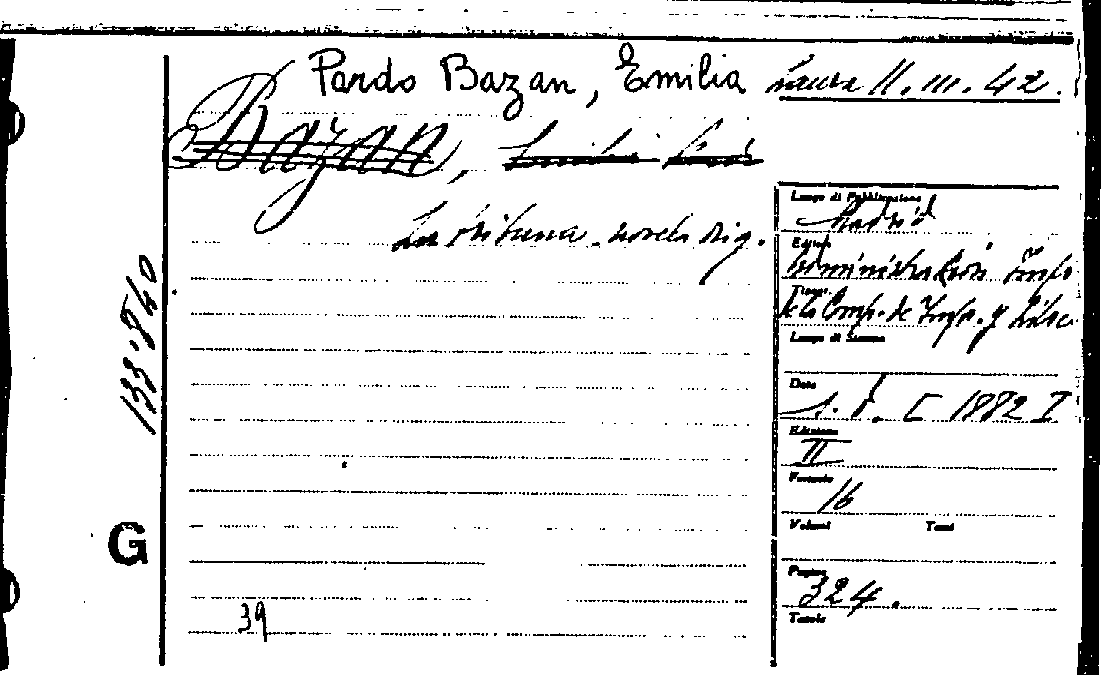 Pardo Bazan, Emilia
11.III.42.
Bazan,
La tribuna novela orig.
133.840
G
39
Luogo di Pubblicazione
Madrid
Editore
Administración Imp.
Tipogr.
de la Comp. de Impr. y Libre
Luogo di Stampa
Data
s. d. [ 1882 ]
Edizione
II
Formato
16
Volumi Tomi
Pagine
324.
Tavole